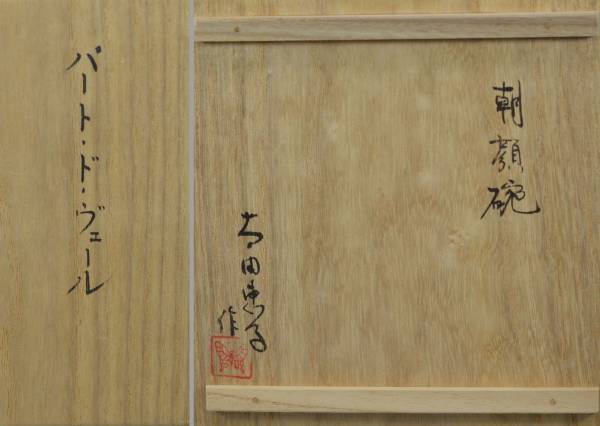 パート・ド・ヴェール
朝顔碗
太田恵子
作